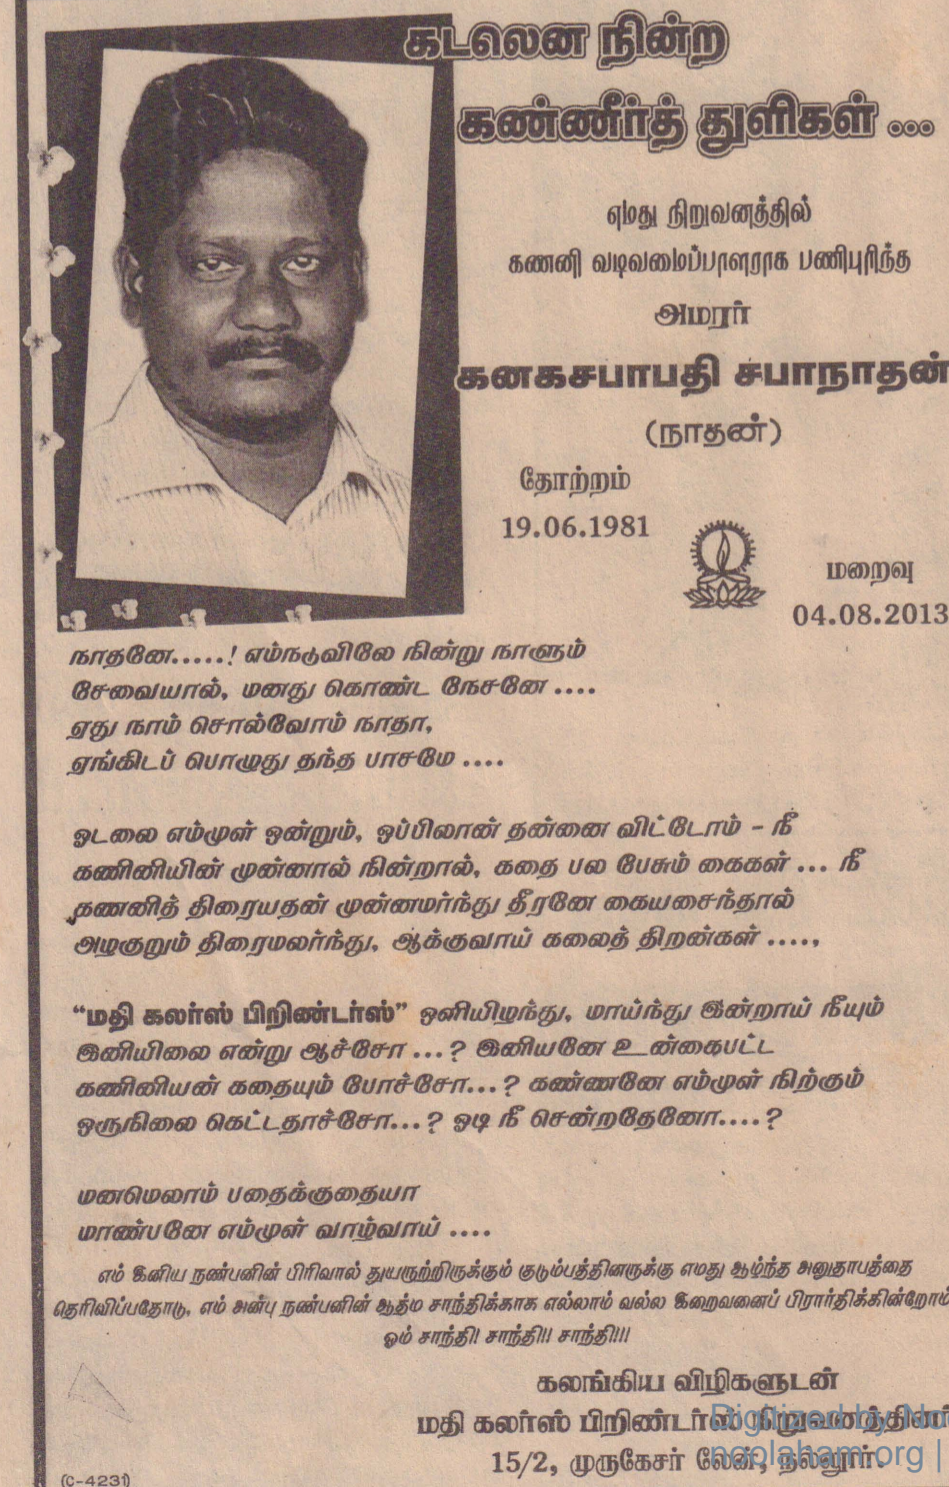 கடலென நின்ற
கண்ணீர்த் துளிகள் ...
எமது நிறுவனத்தில்
கணனி வடிவமைப்பாளராக பணிபுரிந்த
அமரர்
கனகசபாபதி சபாநாதன்
(நாதன்)
தோற்றம்
19.06.1981
மறைவு
04.08.2013
நாதனே.....! எம்நடுவிலே நின்று நாளும்
சேவையால், மனது கொண்ட நேசனே ....
ஏது நாம் சொல்வோம் நாதா,
ஏங்கிடப் பொழுது தந்த பாசமே ....
ஓடலை எம்முள் ஒன்றும், ஒப்பிலான் தன்னை விட்டோம் - நீ
கணினியின் முன்னால் நின்றால், கதை பல பேசும் கைகள் ... நீ
கணனித் திரையதன் முன்னமர்ந்து தீரனே கையசைந்தால்
அழகுறும் திரைமலர்ந்து, ஆக்குவாய் கலைத் திறன்கள் ....,
“மதி கலர்ஸ் பிறிண்டர்ஸ்” ஒளியிழந்து, மாய்ந்து இன்றாய் நீயும்
இனியிலை என்று ஆச்சோ ...? இனியனே உன்கைபட்ட
கணினியன் கதையும் போச்சோ...? கண்ணனே எம்முள் நிற்கும்
ஒருநிலை கெட்டதாச்சோ...? ஓடி நீ சென்றதேனோ....?
மனமெலாம் பதைக்குதையா
மாண்பனே எம்முள் வாழ்வாய் ....
எம் இனிய நண்பனின் பிரிவால் துயருற்றிருக்கும் குடும்பத்தினருக்கு எமது ஆழ்ந்த அனுதாபத்தை
தெரிவிப்பதோடு, எம் அன்பு நண்பனின் ஆத்ம சாந்திக்காக எல்லாம் வல்ல இறைவனைப் பிரார்திக்கின்றோம்
ஓம் சாந்தி! சாந்தி!! சாந்தி!!!
கலங்கிய விழிகளுடன்
மதி கலர்ஸ் பிறிண்டர்ஸ் நிறுவனத்தினர்
15/2, முருகேசர் லேன், நல்லூர்.
(C-4231)
Digitized by No
noolaham.org |